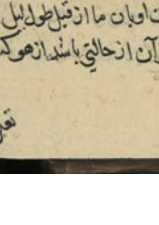 اوبان ما از قبل طول لیل
آن از حالتی باشد از هو که